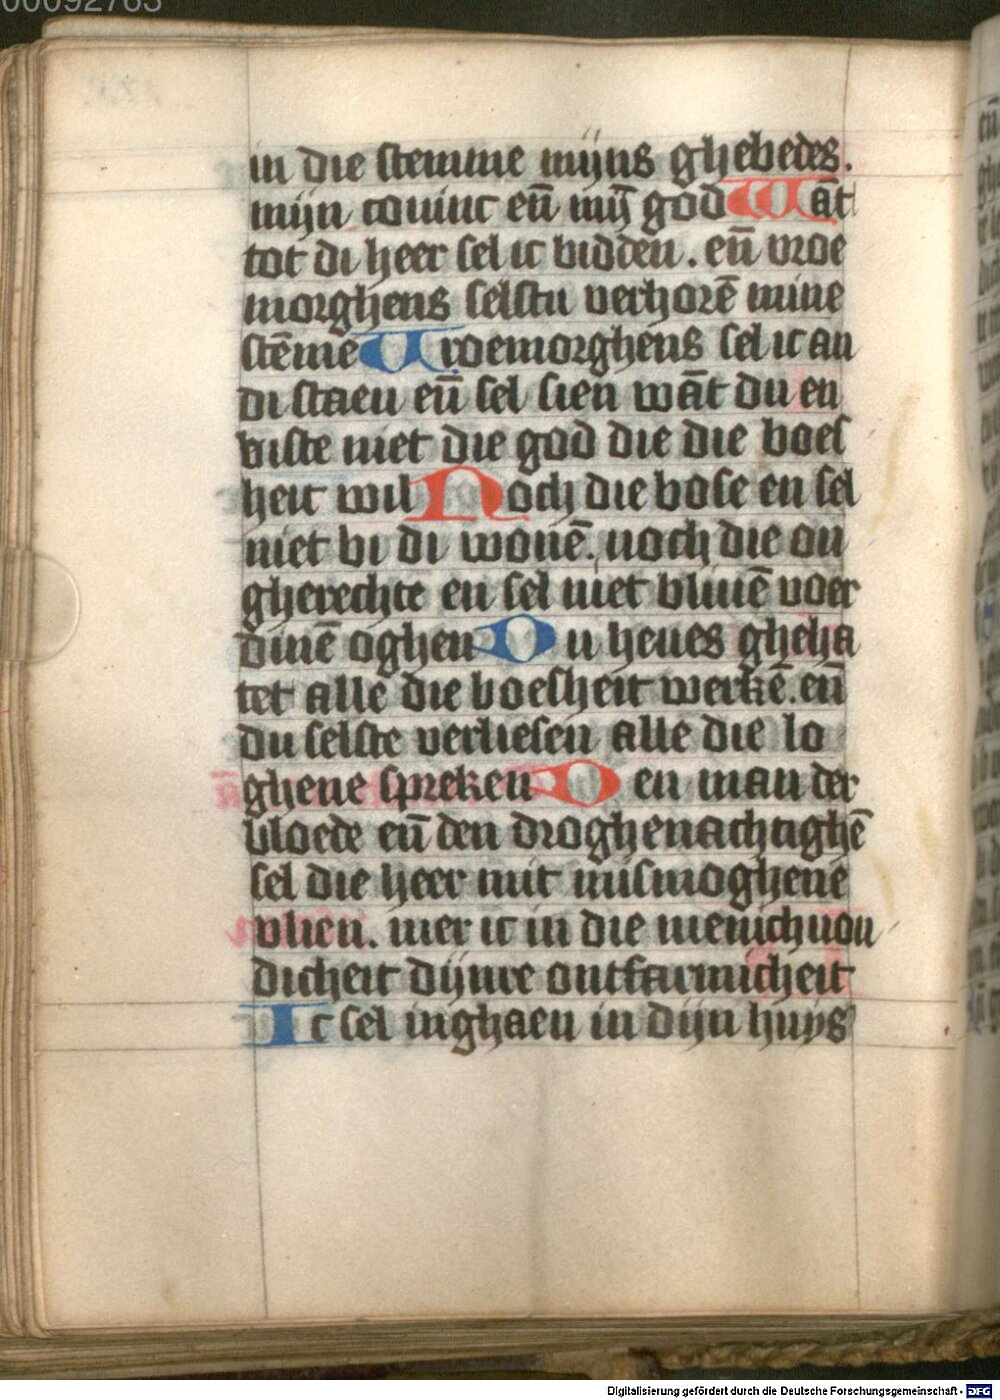 00092763
in die stemme mijns ghebedes.
mijn coninc eñ mij̄ god Wāt
tot di heer sel ic bidden. eñ vroe
morghens selstu verhorē mine
stēme Vroemorghens sel ic an
di staen eñ sel sien wāt du en
biste niet die god die die boes
heit wil Noch die bose en sel
niet bi di wonē. noch die on
gherechte en sel niet bliuē voer
dinē oghen Du heues gheha
tet alle die boesheit werkē. eñ
du selste verliesen alle die lo
ghene spreken Den man der
bloede eñ den droghenachtighē
sel die heer mit mismoghene
vlien. mer ic in die menichuon
dicheit dijnre ontfarmicheit
Ic sel inghaen in dijn huys
Digitalisierung gefördert durch die Deutsche Forschungsgemeinschaft - DFG